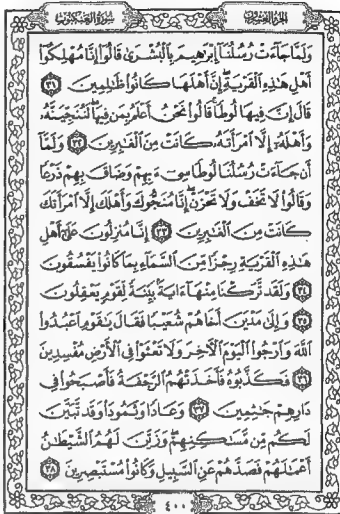 سورة العنكبوت
الجزء العشرون
ولما جاءت رسلنا إبرهيم بالبشرى قالوا إنا مهلكوا
أهل هذه القرية إن أهلها كانوا ظلمين ٣١
قال إن فيها لوطا قالوا نحن أعلم بمن فيها لننجينه
وأهله إلا امرأته كانت من الغبرين ٣٢ ولما
أن جاءت رسلنا لوطا سىء بهم وضاق بهم ذرعا
وقالوا لا تخف ولا تحزن إنا منجوك وأهلك إلا امرأتك
كانت من الغبرين ٣٣ إنا منزلون على أهل
هذه القرية رجزا من السماء بما كانوا يفسقون
٣٤ ولقد تركنا منها ءاية بينة لقوم يعقلون
٣٥ وإلى مدين أخاهم شعيبا فقال يقوم اعبدوا
الله وارجوا اليوم الأخر ولا تعثوا في الأرض مفسدين
٣٦ فكذبوه فأخذتهم الرجفة فأصبحوا في
دارهم جثمين ٣٧ وعادا وثمودا وقد تبين
لكم من مسكنهم وزين لهم الشيطن
أعملهم فصدهم عن السبيل وكانوا مستبصرين ٣٨
٤٠٠